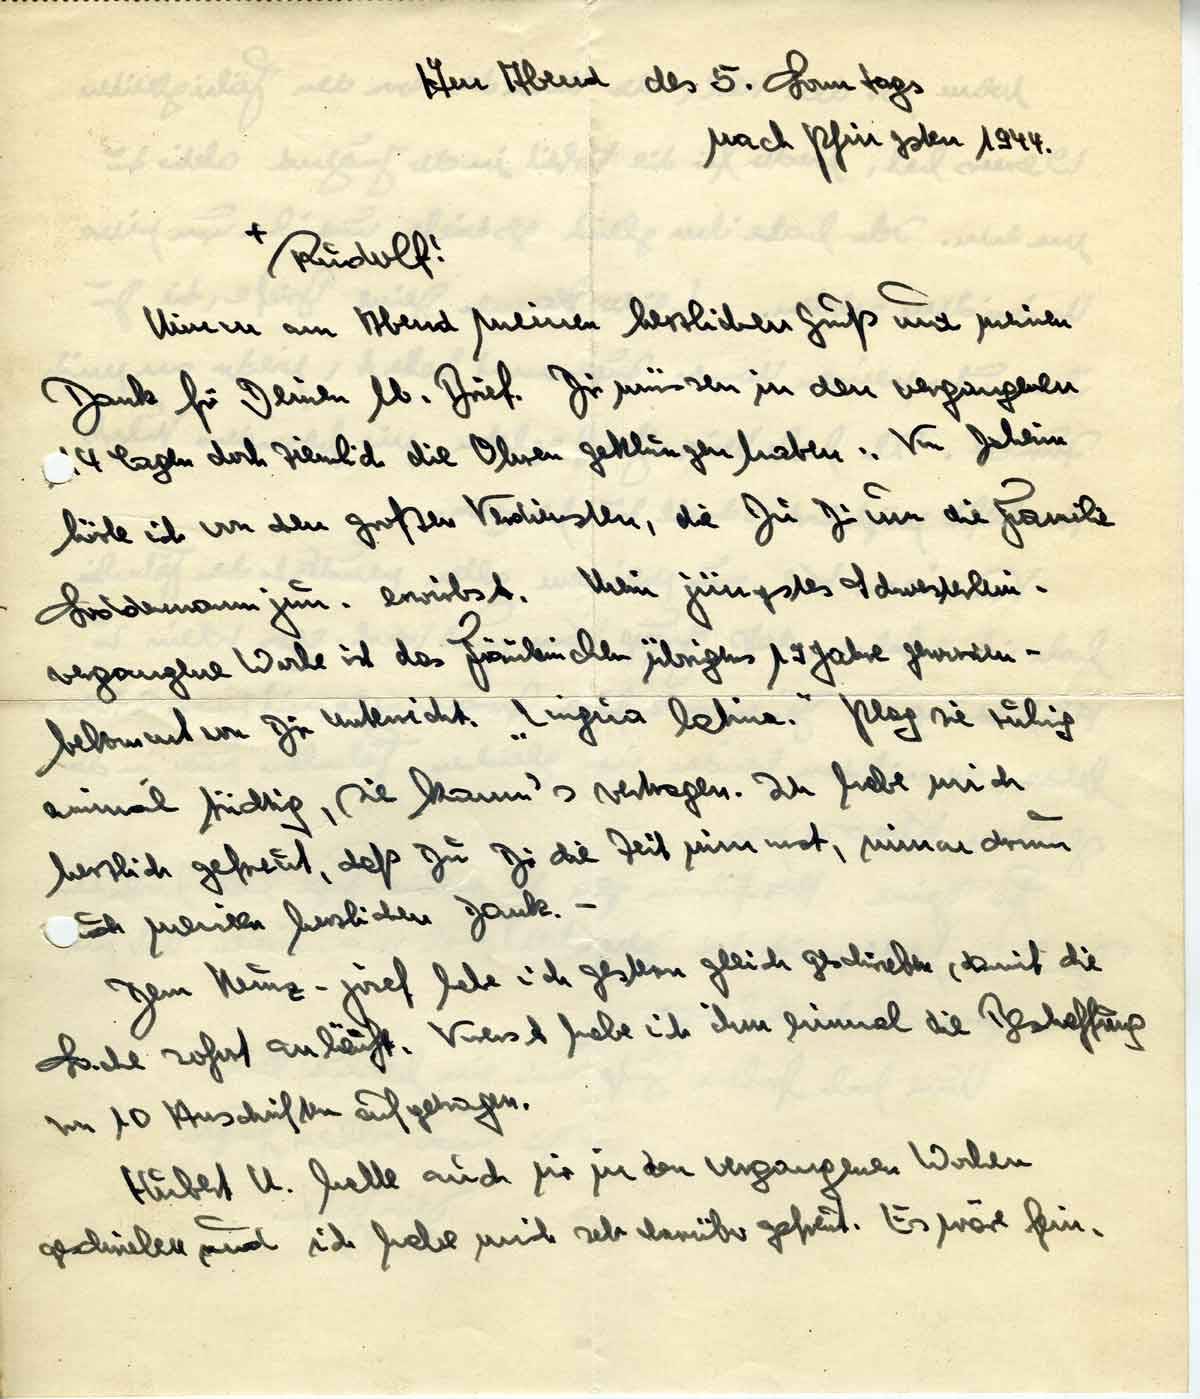 Am Abend des 5. Sonntags
nach Pfingsten 1944.
+ Rudolf!
Nimm am Abend meinen herzlichen Gruß und meinen
Dank für Deinen lb. Brief. Dir müssen in den vergangenen
14 Tagen doch ziemlich die Ohren geklungen haben. Von daheim
hörte ich von den großen Verdiensten, die Du Dir um die Familie
jun. erwirbst. Mein jüngstes Schwesterlein -
vergangene Woche ist das Fräuleinchen übrigens 17 Jahre geworden -
bekommt von Dir Unterricht. „Lingua latina." Plag sie ruhig
einmal tüchtig, sie kann's vertragen. Ich habe mich
herzlich gefreut, daß Du Dir die Zeit nimmst, nimm drum
auch meinen herzlichen Dank. -
Dem habe ich gestern gleich geschrieben, damit die
Sache sofort anläuft. Vorerst habe ich ihm einmal die Beschaffung
von 10 Anschriften aufgetragen.
Hubert U. hatte auch mir in den vergangenen Wochen
geschrieben und ich habe mich sehr darüber gefreut. Es wäre fein,